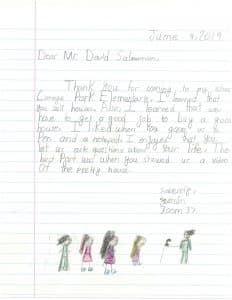 June 4, 2019
Dear Mr. David Saloman,
Thank You for coming to my school
Canoga Park Elementary. I learned that
You sell houses. Also, I learned that you
have to get a good job to buy a good
house. I liked when You gave us a
Pen and a notepad. I enjoyed that You
let us ask questions about Your life. The
best Part was when You showed us a video
Of the pretty house.
Sincerely,
Room 37